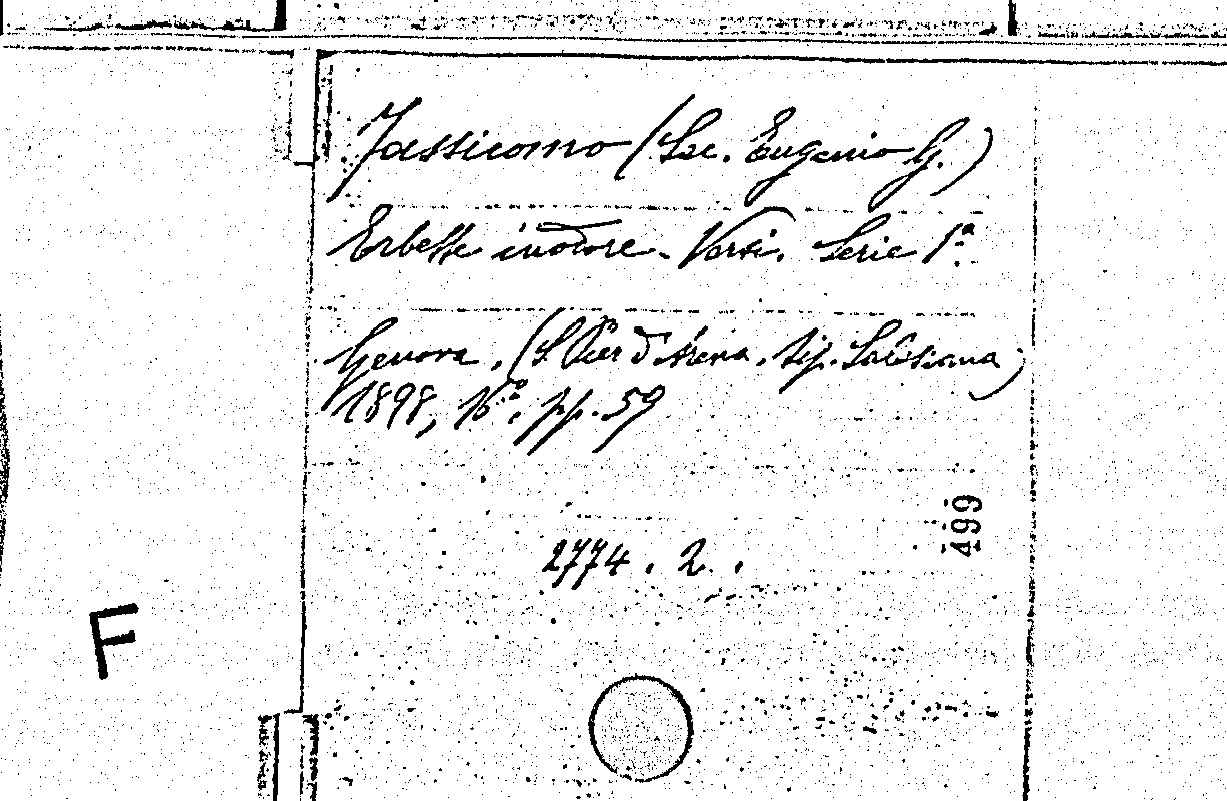 Fassicomo (Sac. Eugenio G.)
Erbette inodore. Versi. Serie 1ª
Genova. (S. Pier d'Arena. tip. Salesiana)
1898, 16º. pp. 59
499
2774. 2.
F